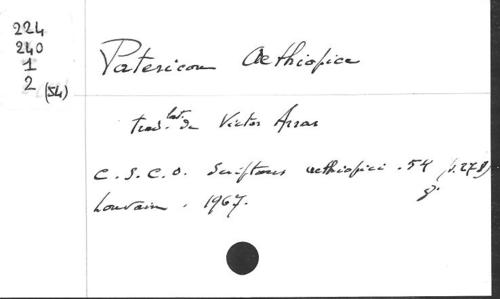 224
240
1
2 (54)
Patericon Aethiopice
trad. lat. de Victor Arras
C.S.C.O. Scriptores aethiopici . 54 (v. 278)
Louvain . 1967.